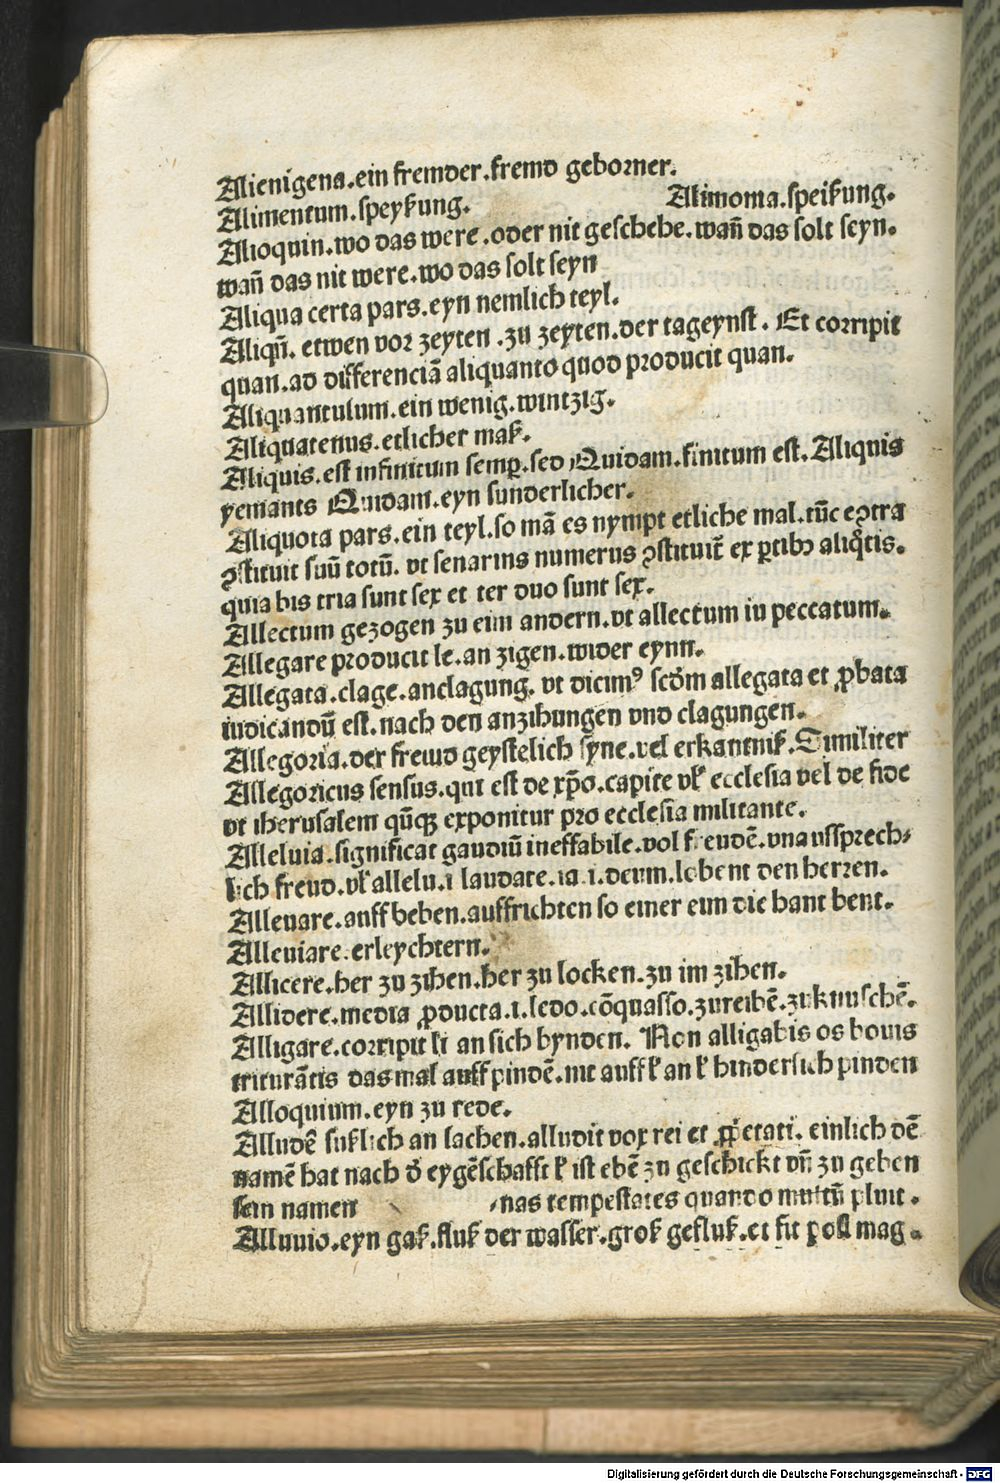 Alienigena.ein fremder.fremd geborner.
Alimentum.speyßung. Alimonia.speißung.
Alioquin.wo das were.oder nit geschehe.wañ das solt seyn.
wañ das nit were.wo das solt seyn
Aliqua certa pars.eyn nemlich teyl.
Aliqñ. etwen vor zeyten.zu zeyten.der tageynst. Et corripit
quan.ad differenciã aliquanto quod producit quan.
Aliquantulum.ein wenig.wintzig.
Aliquatenus.etlicher maß.
Aliquis.est infinitum semp̱.sed Quidam.finitum est.Aliquis
yemants Quidam.eyn sunderlicher.
Aliquota pars.ein teyl.so mã es nympt etliche mal.tũc eꝯtra
ꝯstituit suũ totũ. vt senarius numerus ꝯstituit̃ ex ꝑtibꝫ aliq̃tis.
quia bis tria sunt sex et ter duo sunt sex.
Allectum gezogen zu eim andern.vt allectum in peccatum.
Allegare producit le.an zigen.wider eynn.
Allegata.clage.anclagung. vt dicimꝰ scd̃m allegata et ꝓbata
iudicandũ est.nach den anzihungen vnd clagungen.
Allegoria.der fremd geystelich syne.vel erkantniß.Similiter
Allegoricus sensus.qui est de xp̃o.capite vl' ecclesia vel de fide
vt iherusalem qñqꝫ exponitur pro ecclesia militante.
Alleluia.significat gaudiũ ineffabile.vol freudẽ.vnaussprech⸗
lich freud.vl' allelu.i laudate.ia.i.deum.lobent den herren.
Alleuare.auff heben.auffrichten so einer eim die hant bent.
Alleuiare.erleychtern.
Allicere.her zu zihen.her zu locken.zu im zihen.
Allidere.media ꝓducta.i.ledo.cõquasso.zureibẽ.zuknuschẽ.
Alligare.corripit li an sich bynden. Non alligabis os bouis
triturãtis das mal auff pindẽ.nit auff ł an ł hinderlich pinden
Alloquium.eyn zu rede.
Alludẽ sußlich an lachen.alludit vox rei et ꝓp̃etati. einlich dẽ
namẽ hat nach d̾ eygẽschafft ł ist ebẽ zu geschickt vñ zu geben
sein namen ⸗nas tempestates quando multũ pluit.
Alluuio.eyn gaß.fluß der wasser.groß gefluß.et fit post mag⸗
Digitalisierung gefördert durch die Deutsche Forschungsgemeinschaft - DFG